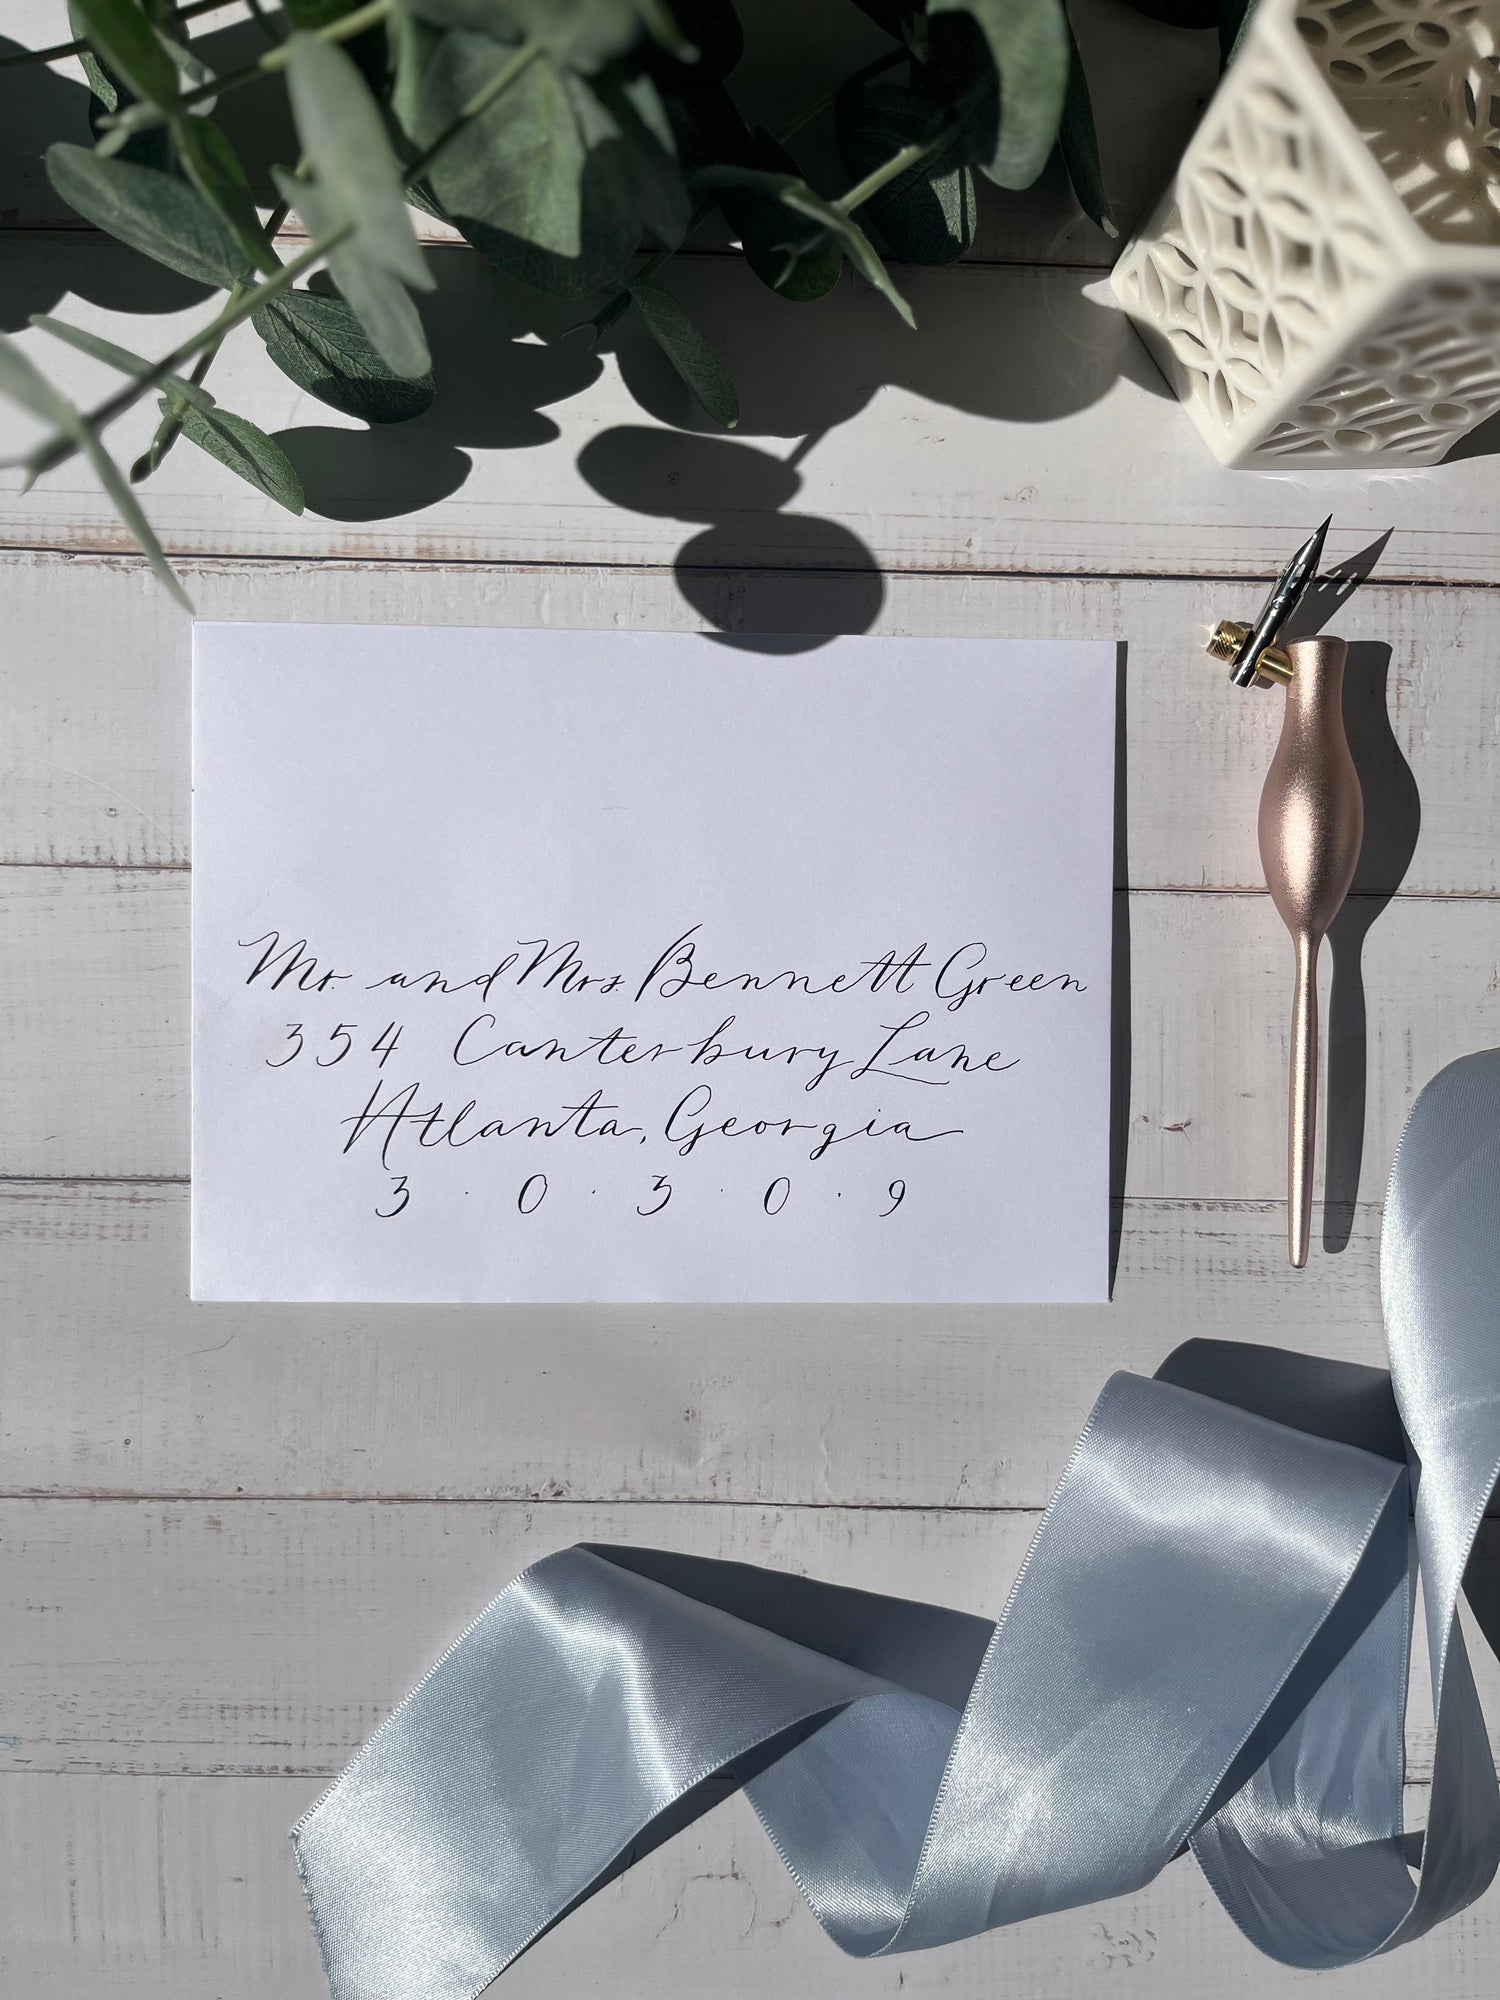 Mr. and Mrs. Bennett Green
354 Canterbury Lane
Atlanta, Georgia
3 · 0 · 3 · 0 · 9